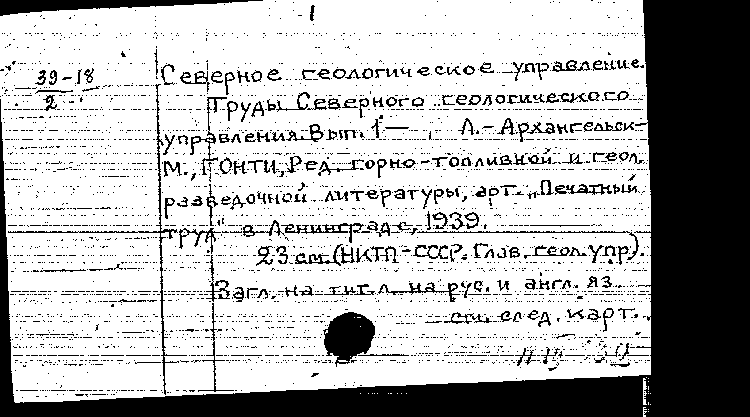 1
39-18
2
Северное геологическое управление.
Труды Северного геологического
управления. Вып. 1— . Л.-Архангельск-
М., ГОНТИ, Ред. горно-топливной и геол.
разведочной литературы, арт. „Печатный
труд" в Ленинграде, 1939.
23 см. (НКТП-СССР. Глав. геол. упр.).
Загл. на тит. л. на рус. и англ. яз.
см. след. карт.